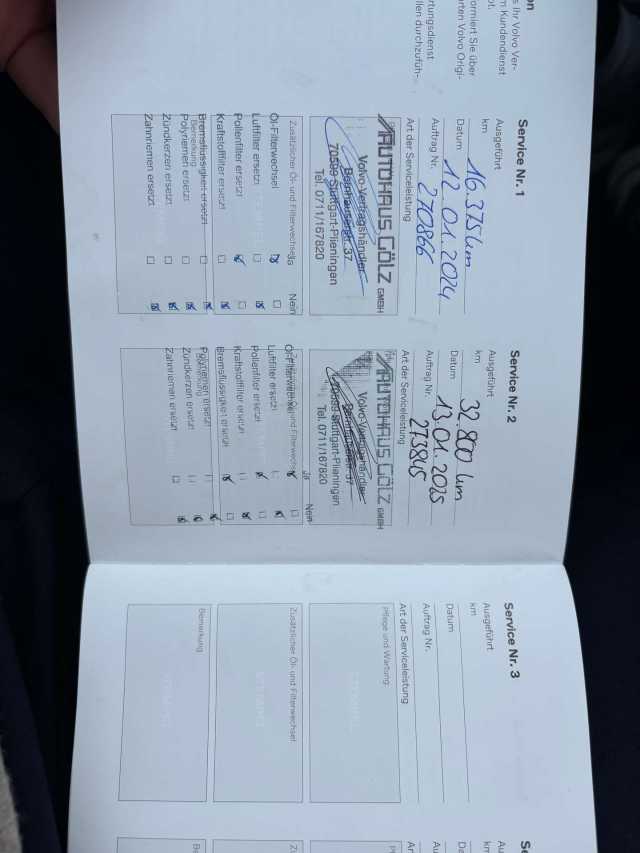 on
s Ihr Volvo Ver-
m Kundendienst
formiert Sie über
arten Volvo Origi-
rtungsdienst
llen durchzufüh-
Service Nr. 1
Ausgeführt
km 16.375 km
Datum 12.01.2024
Auftrag Nr. 270866
Art der Serviceleistung
AUTOHAUS GÖLZ GMBH
Volvo-Vertragshändler
Bernhauserstr. 37
70599 Stuttgart-Plieningen
Tel. 0711/167820
Zusätzlicher Öl- und Filterwechsel
Ja Nein
Öl-Filterwechsel
Luftfilter ersetzt
Pollenfilter ersetzt
Kraftstofffilter ersetzt
Bremsflüssigkeit ersetzt
Bemerkung
Polyriemen ersetzt
Zündkerzen ersetzt
Zahnriemen ersetzt
Service Nr. 2
Ausgeführt
km 32.800 km
Datum 13.01.2025
Auftrag Nr. 273845
Art der Serviceleistung
AUTOHAUS GÖLZ GMBH
Volvo-Vertragshändler
Bernhauserstr. 37
70599 Stuttgart-Plieningen
Tel. 0711/167820
Zusätzlicher Öl- und Filterwechsel
Ja Nein
Öl-Filterwechsel
Luftfilter ersetzt
Pollenfilter ersetzt
Kraftstofffilter ersetzt
Bremsflüssigkeit ersetzt
Bemerkung
Polyriemen ersetzt
Zündkerzen ersetzt
Zahnriemen ersetzt
Service Nr. 3
Ausgeführt
km
Datum
Auftrag Nr.
Art der Serviceleistung
Pflege und Wartung
STEMPEL
Zusätzlicher Öl- und Filterwechsel
STEMPEL
Bemerkung
STEMPEL
Se
Au
km
Da
Au
Ar
Pf
Z
Be